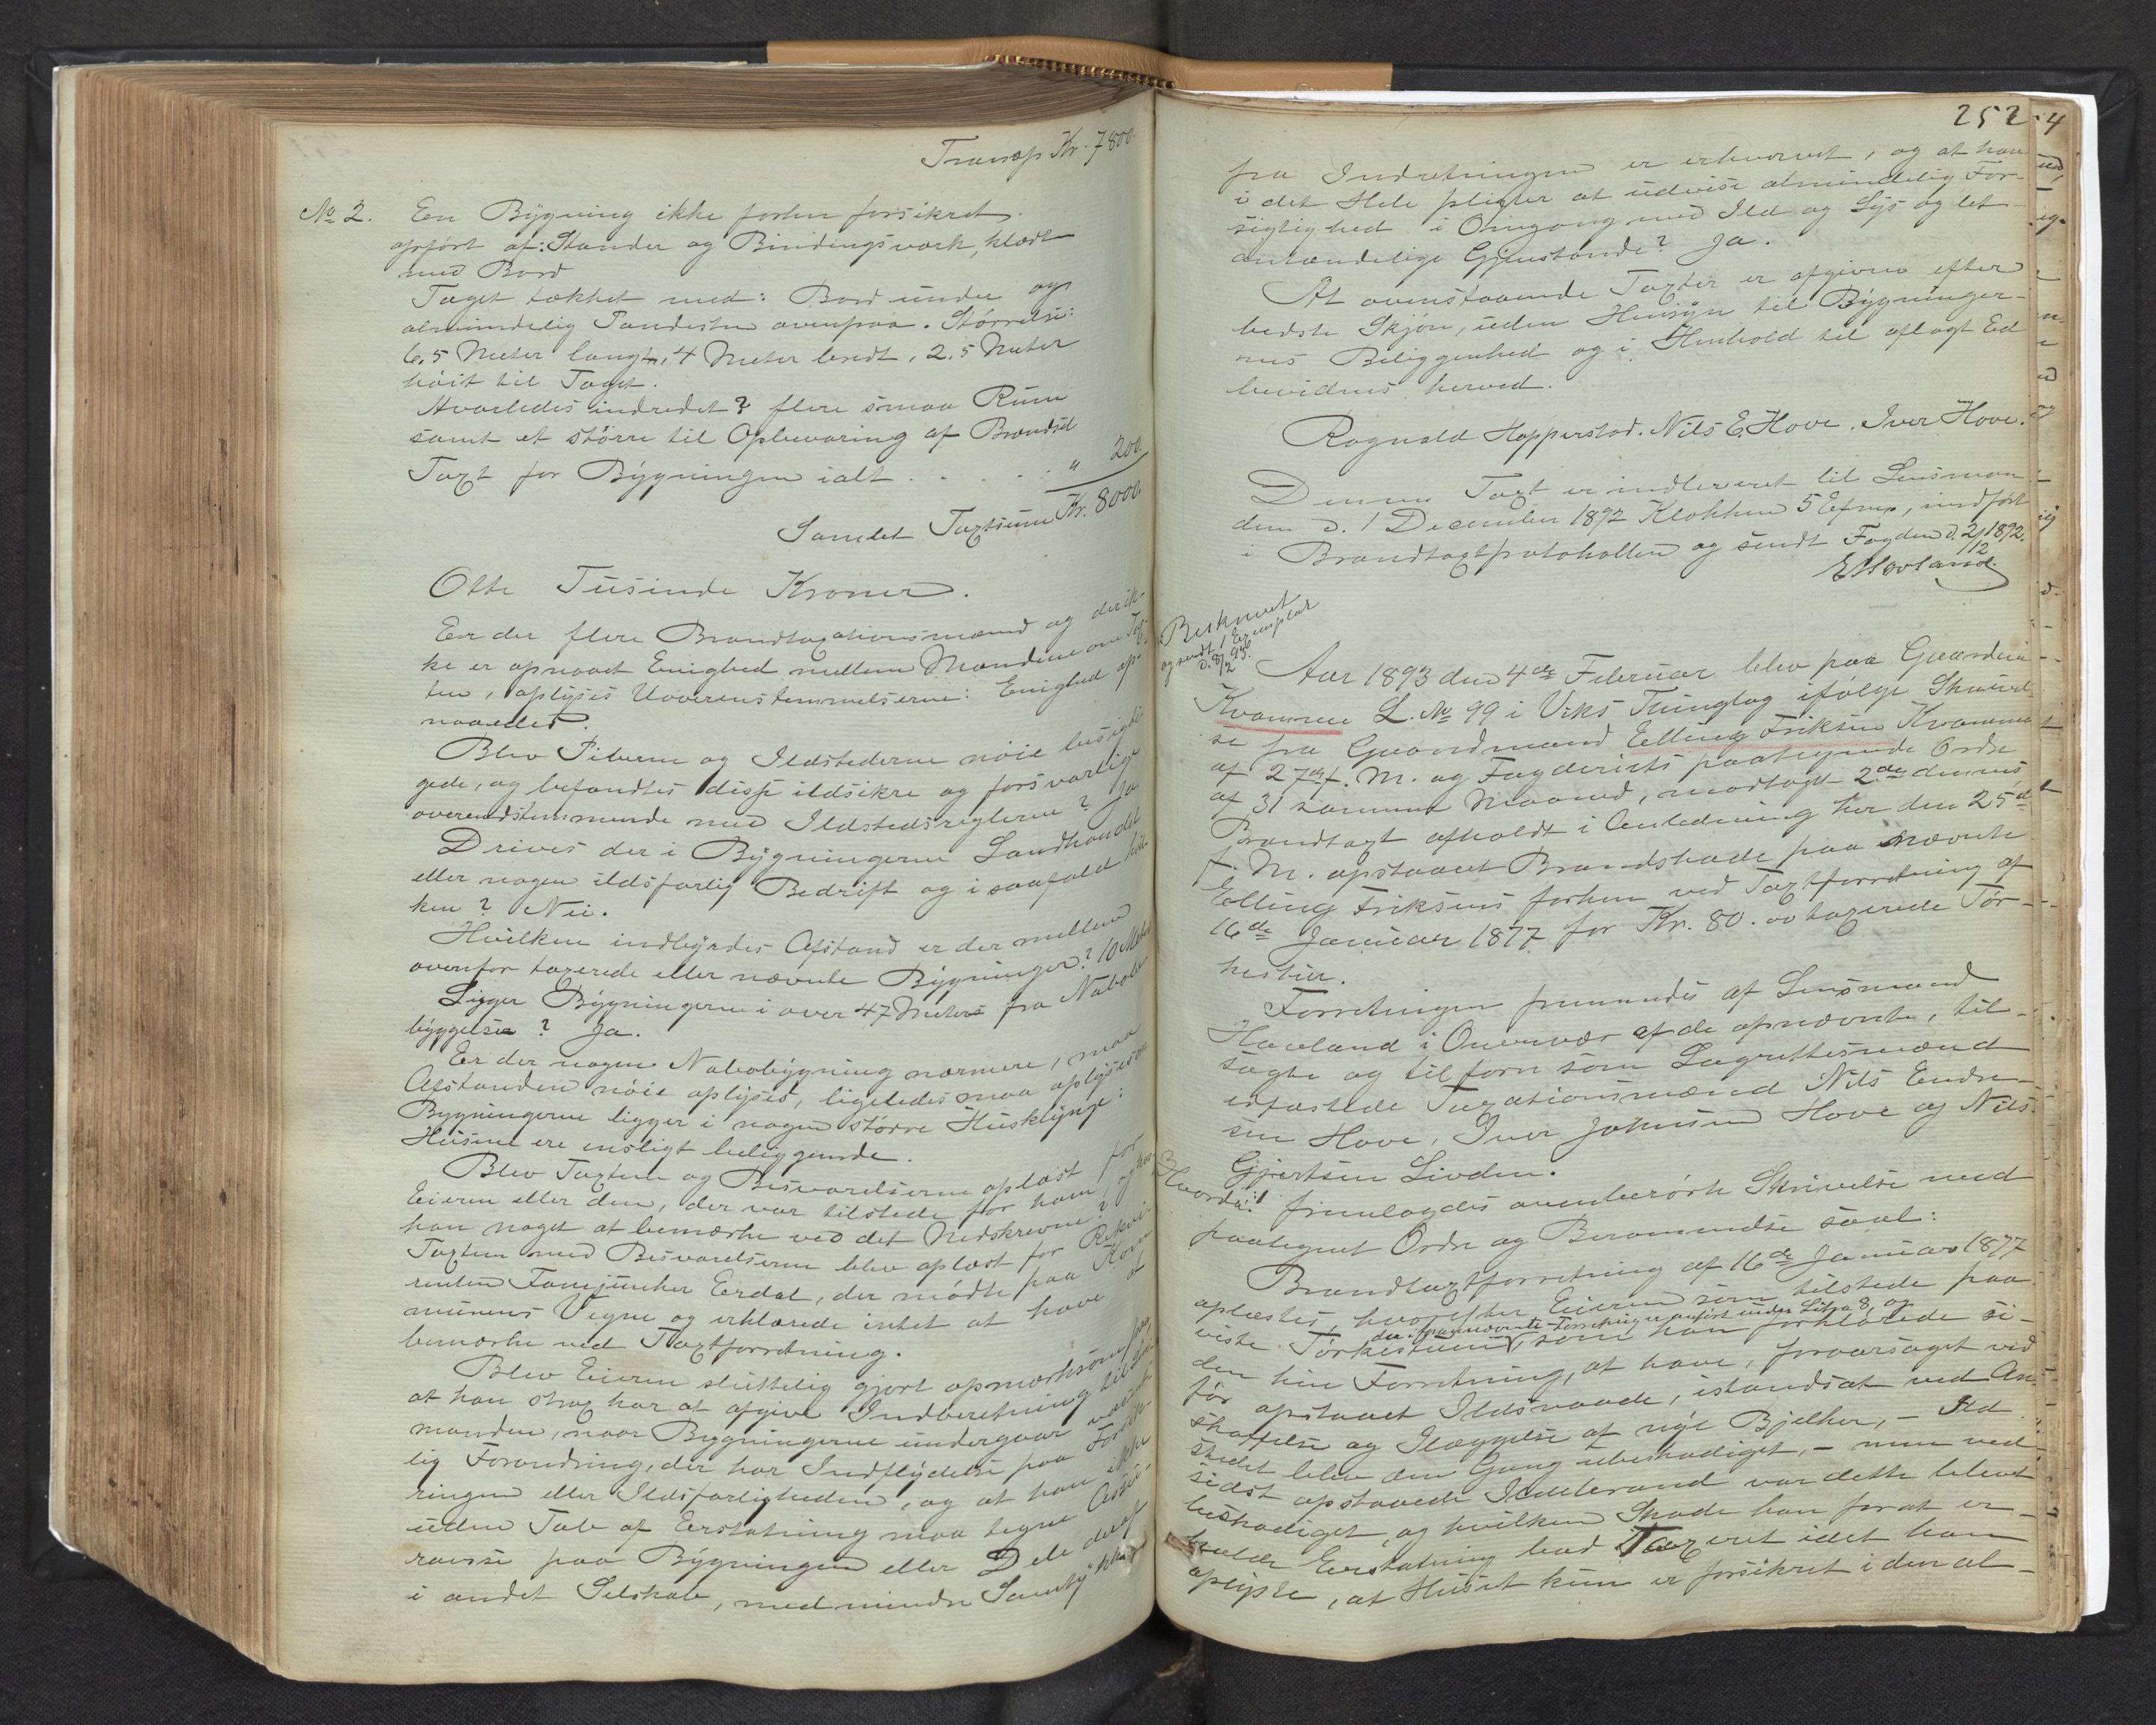 Transp Kr. 7800.
No 2. Een Bygning ikke forhen forsikret.
opført af: Stander og Bindingsværk, klædt
med Bord
Taget tækket med: Bord under og
almindelig Tandsten ovenpaa. Størrelse:
6,5 Meter langt, 4 Meter bredt, 2,5 Meter
høit til Taget.
Hvorledes indredet? flere smaa Rum
samt et større til Opbevaring af Brændsel
Taxt for Bygningen ialt . . . . . " 200.
Samlet Taxtsum Kr. 8000.
Otte Tusinde Kroner.
Er der flere Brandtaxationsmænd og der ik-
ke er opnaaet Enighed mellem Mændene om Tax-
ten, oplyses Uoverenstemmelserne: Enighed op-
naaedes.
Blev Piberne og Ildstederne nøie besigti
gede, og befandtes disse ildsikre og forsvarlige
overendstemmende med Ildstedsreglerne? Ja
Drives der i Bygningerne Landhandel
eller nogen ildsfarlig Bedrift og i saafald hvil-
ken? Nei.
Hvilken indbyrdes Afstand er der mellem
ovenfor taxerede eller nævnte Bygninger? 10 Meter
Ligger Bygningerne i over 47 Meters fra Nabobe
byggelse? Ja.
Er der nogen Nabobygning nærmere, maa
Afstanden nøie oplyses, ligeledes maa oplyses om
Bygningerne ligger i nogen større Husklynge:
Husene ere ensligt beliggende.
Blev Taxten og Besvarelserne oplæst for
Eieren eller den, der var tilstede for ham, og har
han noget at bemærke ved det Nedskrevne?
Taxten med Besvarelserne blev oplæst for Rekvi-
renten Fanejunker Erdal, der mødte paa Kom
munens Vegne og erklærede intet at have at
bemærke ved Taxtforretning.
Blev Eieren sluttelig gjort opmærksom paa,
at han strax har at afgive Indberetning til Lens-
manden, naar Bygningerne undergaar væsent-
lig Forandring, der har Indflydelse paa Forsik-
ringen eller Ildsfarligheden, og at han ikke
uden Tab af Erstatning maa tegne Assu-
rance paa Bygningen eller Dele deraf
i andet Selskab, med mindre Samtykke
252
fra Indretningen er erhvervet, og at han
i det Hele pligter at udvise almindelig For-
sigtighed i Omgang med Ild og Lys og let
antændelige Gjenstande? Ja.
At ovenstaaende Taxter er afgivne efter
bedste Skjøn, uden Hensyn til Bygninger-
nes Beliggenhed og i Henhold til aflagt Ed
bevidnes herved.
Ragnvald Hopperstad. Nils E. Hove. Iver Hove.
Denne Taxt er indleveret til Lensman
den d. 1 December 1892 Klokken 5 Efterm, indført
i Brandtaxtprotokollen og sendt Fogden d. 2/12 1892.
E Hovland.
Beskrevet
og sendt 1 Exemplar
d. 8/2 93.
Aar 1893 den 4de Februar blev paa Gaarden
Kvamme L. No 99 i Viks Thinglag ifølge Skrivel-
se fra Gaardmand Elling Eriksen Kvamme
af 27de f. M. og Fogderiets paategnede Ordre
af 31 samme Maaned, modtaget 2den dennes
Brandtaxt afholdt i Anledning her den 25de
f. M. opstaaet Brandskade paa nævnte
Elling Eriksens forhen ved Taxtforretning af
16de Januar 1877 for Kr. 80.00 taxerede Tør-
kestue.
Forretningen fremmedes af Lensmand
Hovland i Overvær af de opnævnte, til-
sagte og til forn som Lagrettesmænd
edfæstede Taxationsmænd Nils Endre-
sen Hove, Iver Johnsen Hove og Nils
Gjertsen Livden.
Hvorda:! fremlagdes ovenberørte Skrivelse med
paategnet Ordre og Berammelse saal:
Brandtaxtforretning af 16de Januar 1877
oplæstes, hvorefter Eieren som tilstede paa
viste Tørkestuen, der i sammenævnte Forretning er anført under Litra 8, og som han forklarede si-
den hin Forretning, at have, foraarsaget ved
før opstaaet Ildsvaade, istandsat ved An-
skaffelse og Ilæggelse af nye Bjelker, – Ild
stedet blev den Gang ubeskadiget, – men ved
sidst opstaaede Ildebrand var dette blevet
beskadiget, og hvilken Skade han for at er-
holde Erstatning bad Taxeret idet han
oplyste, at Huset kun er forsikret i den al-